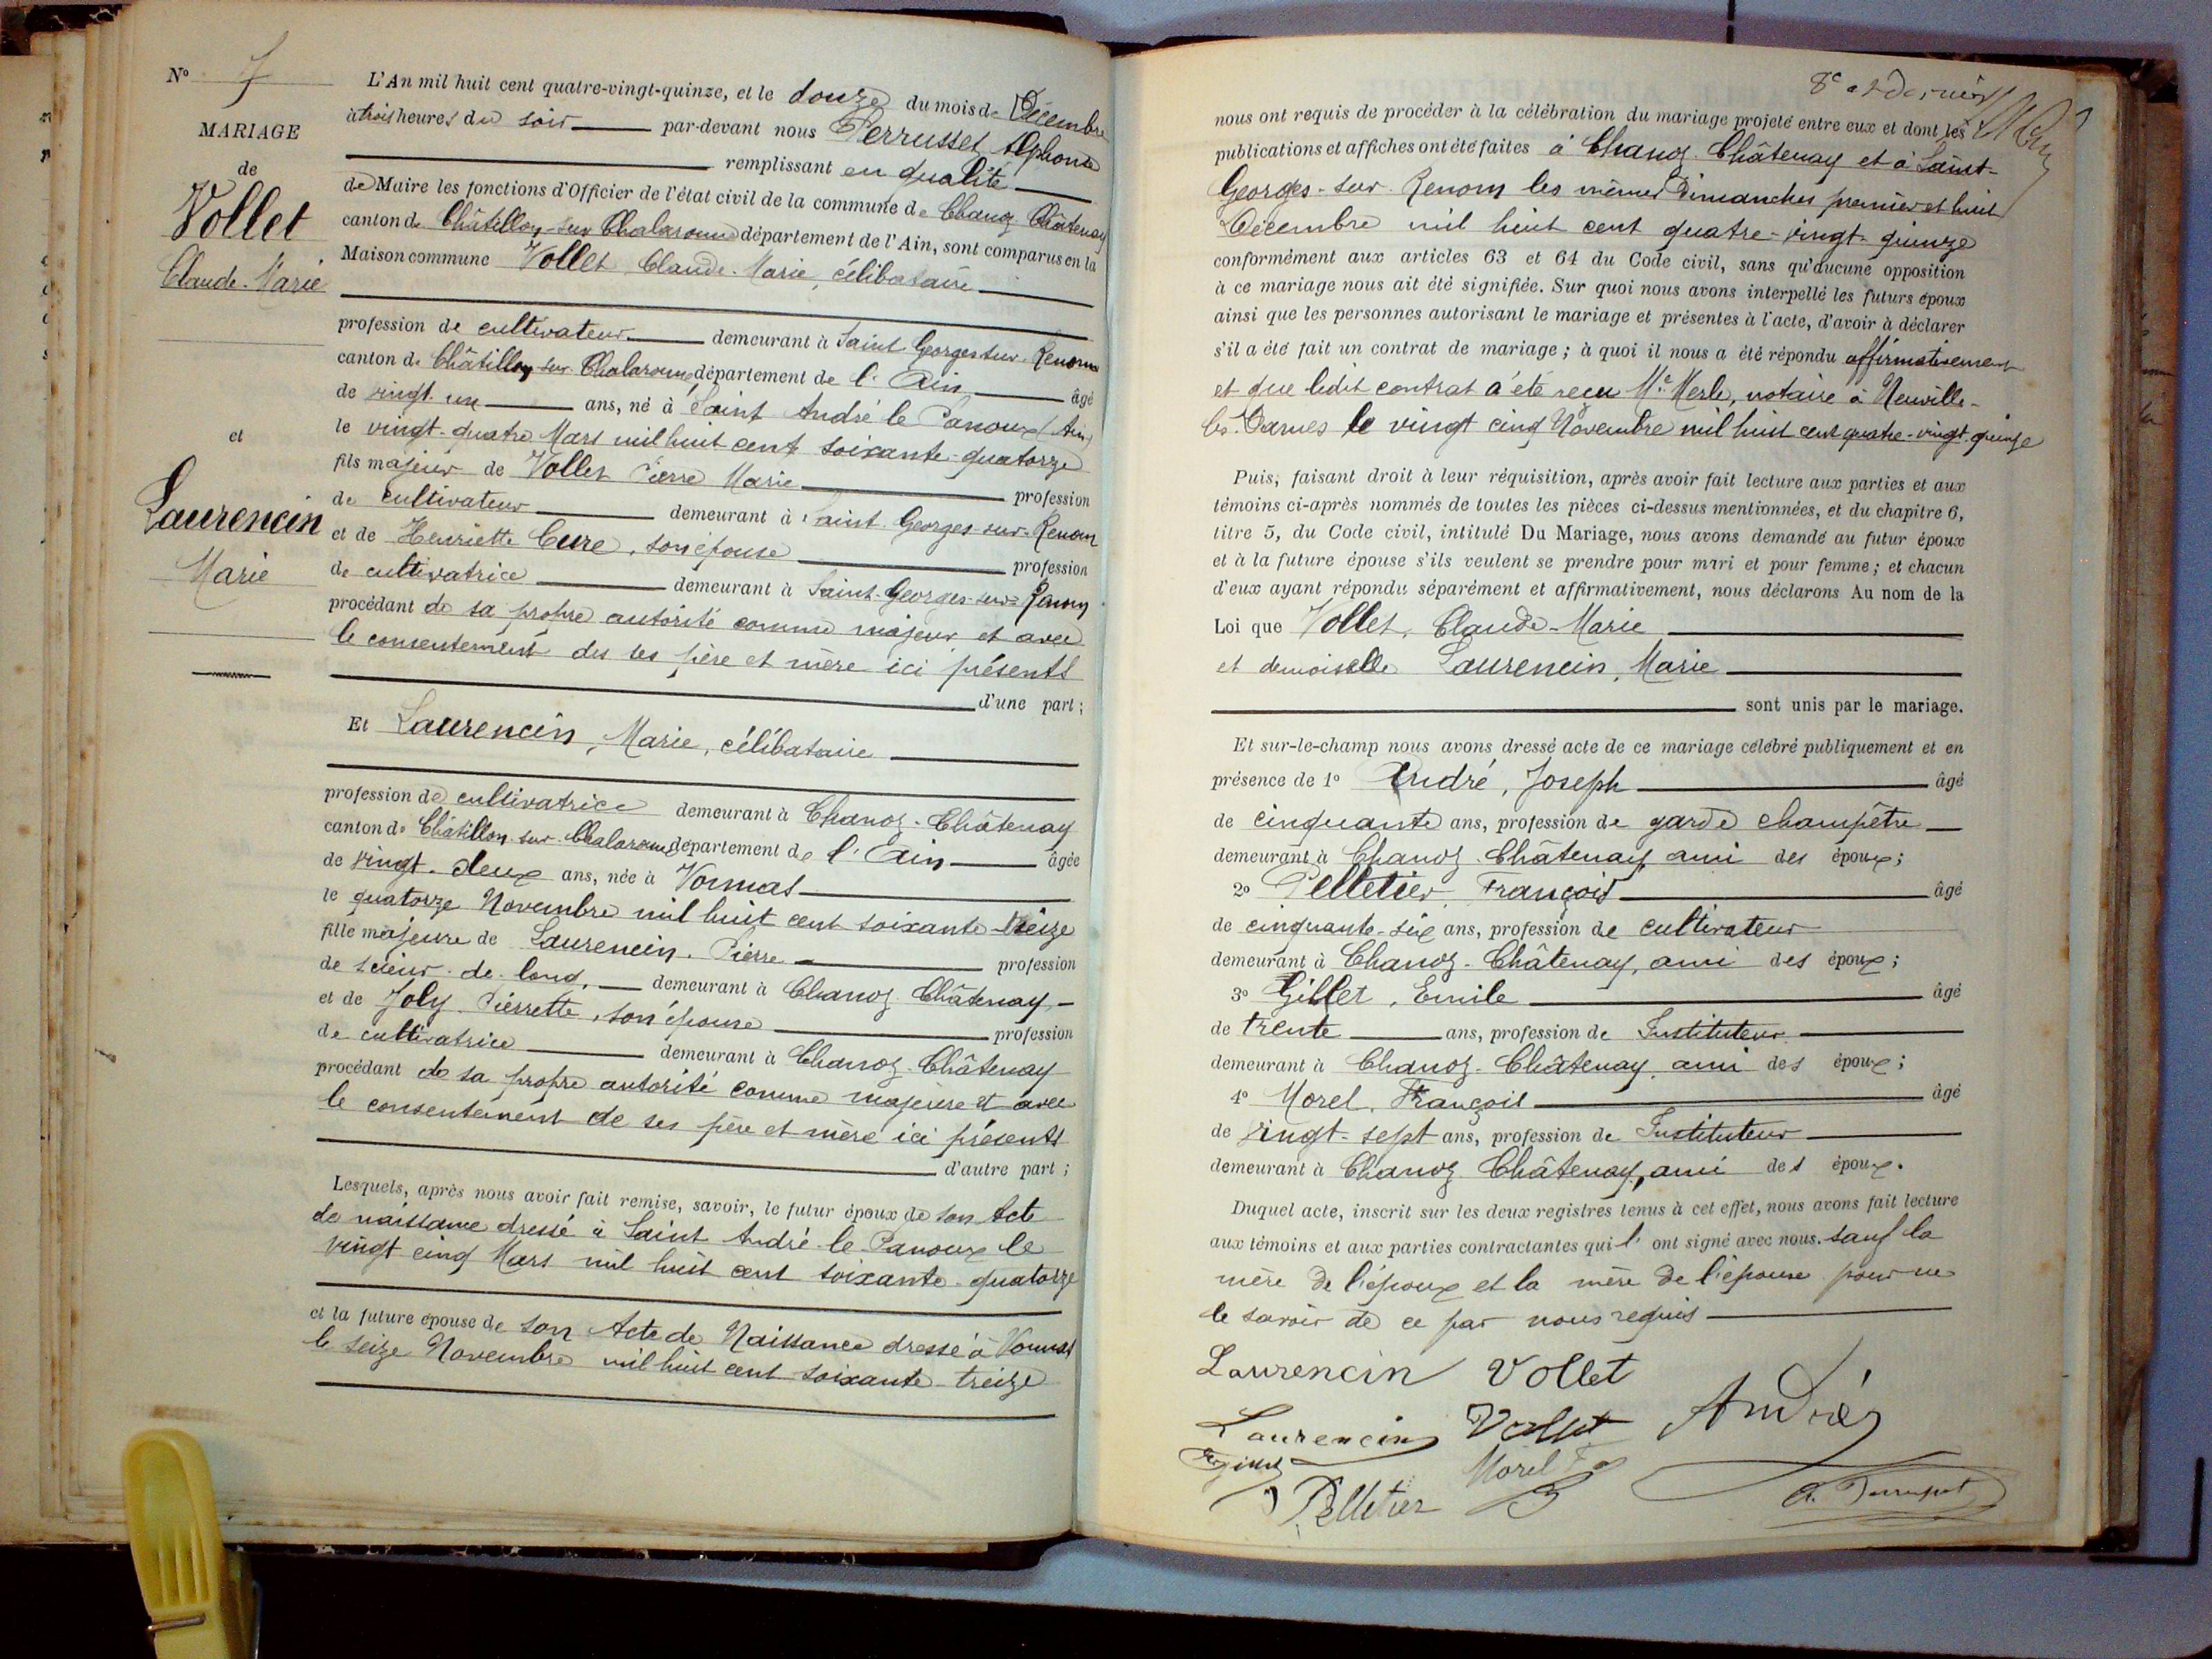 N° 7
MARIAGE
de
Vollet
Claude-Marie
et
Laurencin
Marie
L'An mil huit cent quatre-vingt-quinze, et le douze du mois de Décembre
à trois heures du soir par-devant nous Perrusset Alphonse
remplissant en qualité
de Maire les fonctions d'Officier de l'état civil de la commune de Chanoz-Châtenay
canton de Châtillon-sur-Chalaronne département de l'Ain, sont comparus en la
Maison commune Vollet Claude-Marie, célibataire
profession de cultivateur demeurant à Saint-Georges-sur-Renom
canton de Châtillon-sur-Chalaronne département de l'Ain âgé
de vingt-un ans, né à Saint André le Panoux (Ain)
le vingt-quatre Mars mil huit cent soixante-quatorze
fils majeur de Vollet Pierre Marie profession
de cultivateur demeurant à Saint-Georges-sur-Renom
et de Henriette Cure, son épouse profession
de cultivatrice demeurant à Saint-Georges-sur-Renom
procédant de sa propre autorité comme majeur et avec
le consentement des ses père et mère ici présents
d'une part;
Et Laurencin, Marie, célibataire
profession de cultivatrice demeurant à Chanoz-Châtenay
canton de Châtillon-sur-Chalaronne département de l'Ain âgée
de vingt-deux ans, née à Vonnas
le quatorze Novembre mil huit cent soixante-treize
fille majeure de Laurencin, Pierre profession
de scieur de long, demeurant à Chanoz-Châtenay
et de Joly Pierrette, son épouse profession
de cultivatrice demeurant à Chanoz-Châtenay
procédant de sa propre autorité comme majeure et avec
le consentement de ses père et mère ici présents
d'autre part;
Lesquels, après nous avoir fait remise, savoir, le futur époux de son Acte
de naissance dressé à Saint André-le-Panoux le
vingt cinq Mars mil huit cent soixante-quatorze
et la future épouse de son Acte de Naissance dressé à Vonnas
le seize Novembre mil huit cent soixante-treize
8e et dernier
nous ont requis de procéder à la célébration du mariage projeté entre eux et dont les
publications et affiches ont été faites à Chanoz-Châtenay et à Saint-
Georges-sur-Renom les mêmes Dimanches premier et huit
Décembre mil huit cent quatre-vingt-quinze
conformément aux articles 63 et 64 du Code civil, sans qu'aucune opposition
à ce mariage nous ait été signifiée. Sur quoi nous avons interpellé les futurs époux
ainsi que les personnes autorisant le mariage et présentes à l'acte, d'avoir à déclarer
s'il a été fait un contrat de mariage; à quoi il nous a été répondu affirmativement
et que ledit contrat a été reçu Me Merle, notaire à Neuville-
les-Dames le vingt cinq Novembre mil huit cent quatre-vingt-quinze
Puis, faisant droit à leur réquisition, après avoir fait lecture aux parties et aux
témoins ci-après nommés de toutes les pièces ci-dessus mentionnées, et du chapitre 6,
titre 5, du Code civil, intitulé Du Mariage, nous avons demandé au futur époux
et à la future épouse s'ils veulent se prendre pour mari et pour femme; et chacun
d'eux ayant répondu séparément et affirmativement, nous déclarons Au nom de la
Loi que Vollet, Claude-Marie
et demoiselle Laurencin, Marie
sont unis par le mariage.
Et sur-le-champ nous avons dressé acte de ce mariage célébré publiquement et en
présence de 1° André, Joseph âgé
de cinquante ans, profession de garde champêtre
demeurant à Chanoz-Châtenay ami des époux;
2° Pelletier, François âgé
de cinquante-six ans, profession de cultivateur
demeurant à Chanoz-Châtenay, ami des époux;
3° Gillet, Emile âgé
de trente ans, profession de Instituteur
demeurant à Chanoz-Châtenay, ami des époux;
4° Morel, François âgé
de vingt-sept ans, profession de Instituteur
demeurant à Chanoz-Châtenay, ami des époux.
Duquel acte, inscrit sur les deux registres tenus à cet effet, nous avons fait lecture
aux témoins et aux parties contractantes qui l'ont signé avec nous. sauf la
mère de l'époux et la mère de l'épouse pour ne
le savoir de ce par nous requis
Laurencin Vollet
Laurencin Vollet André
Morel F
Pelletier A. Perrusset